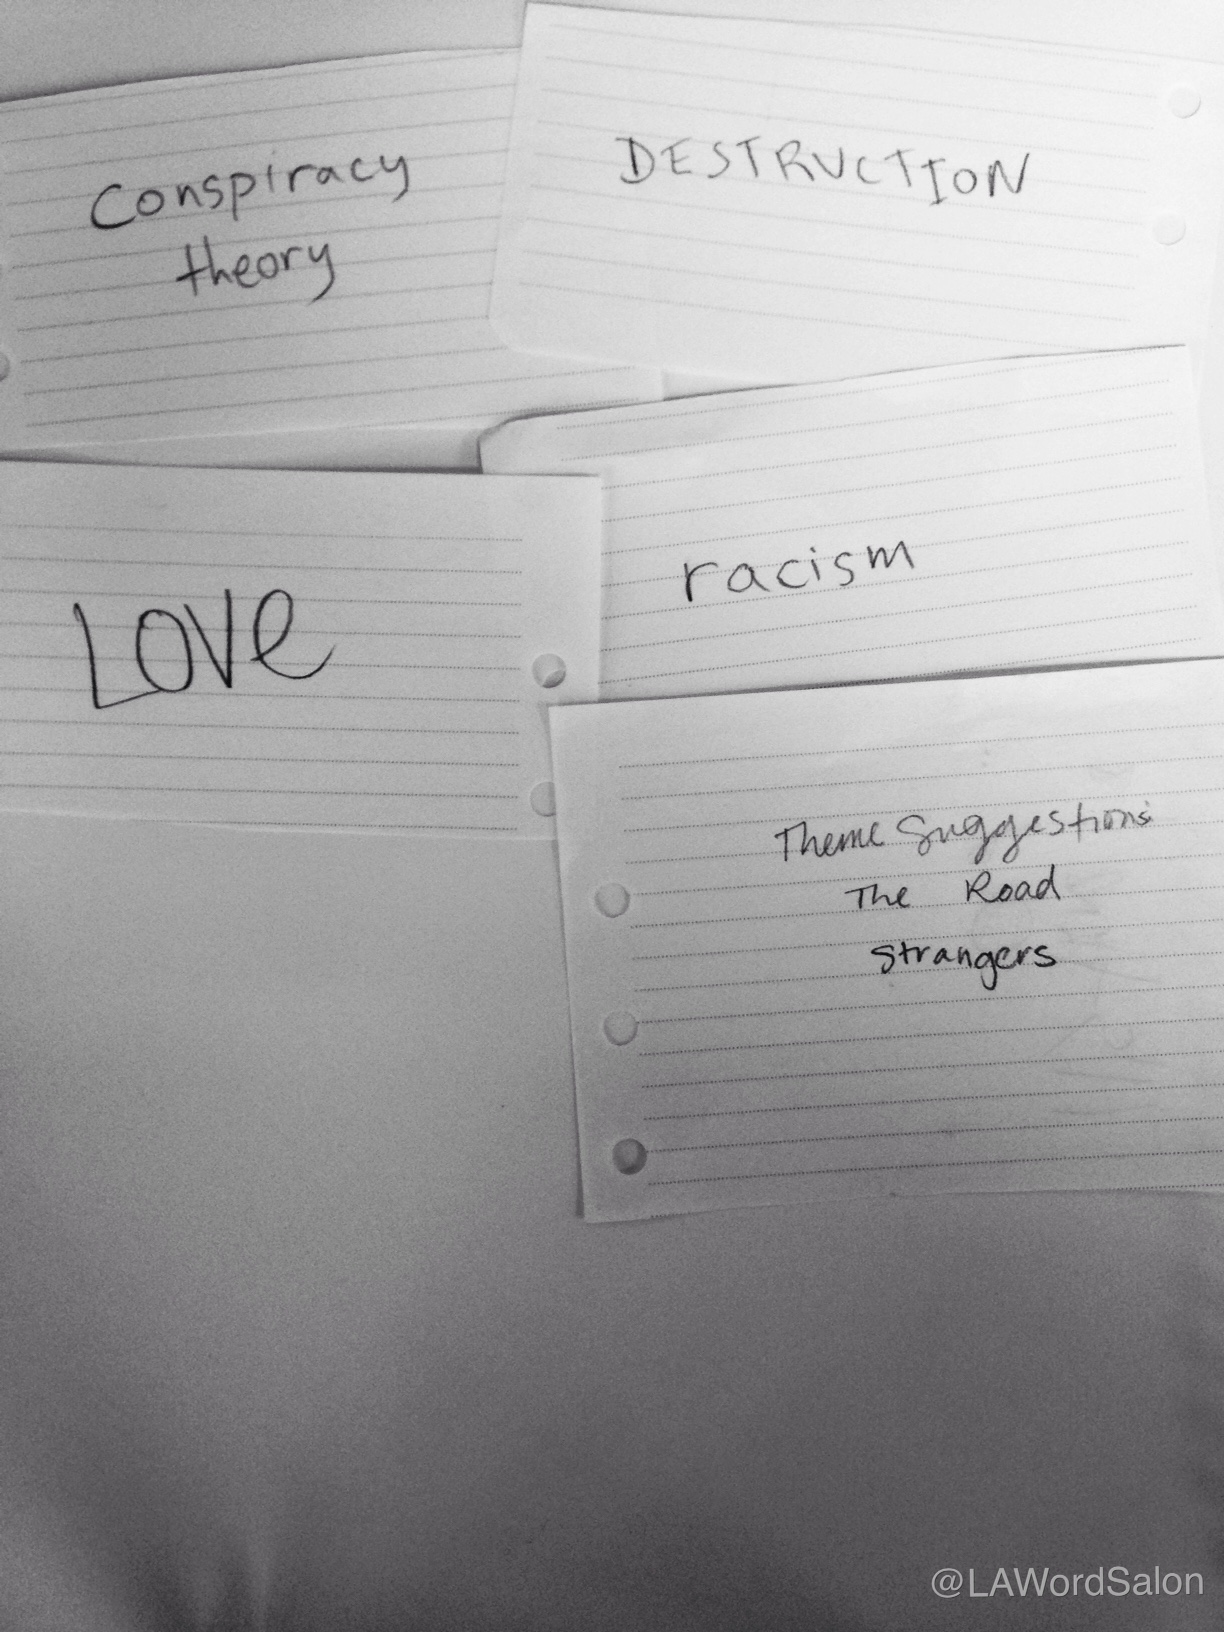 Conspiracy
theory
DESTRUCTION
LOVe
racism
Theme Suggestions:
The Road
Strangers
@LAWordSalon